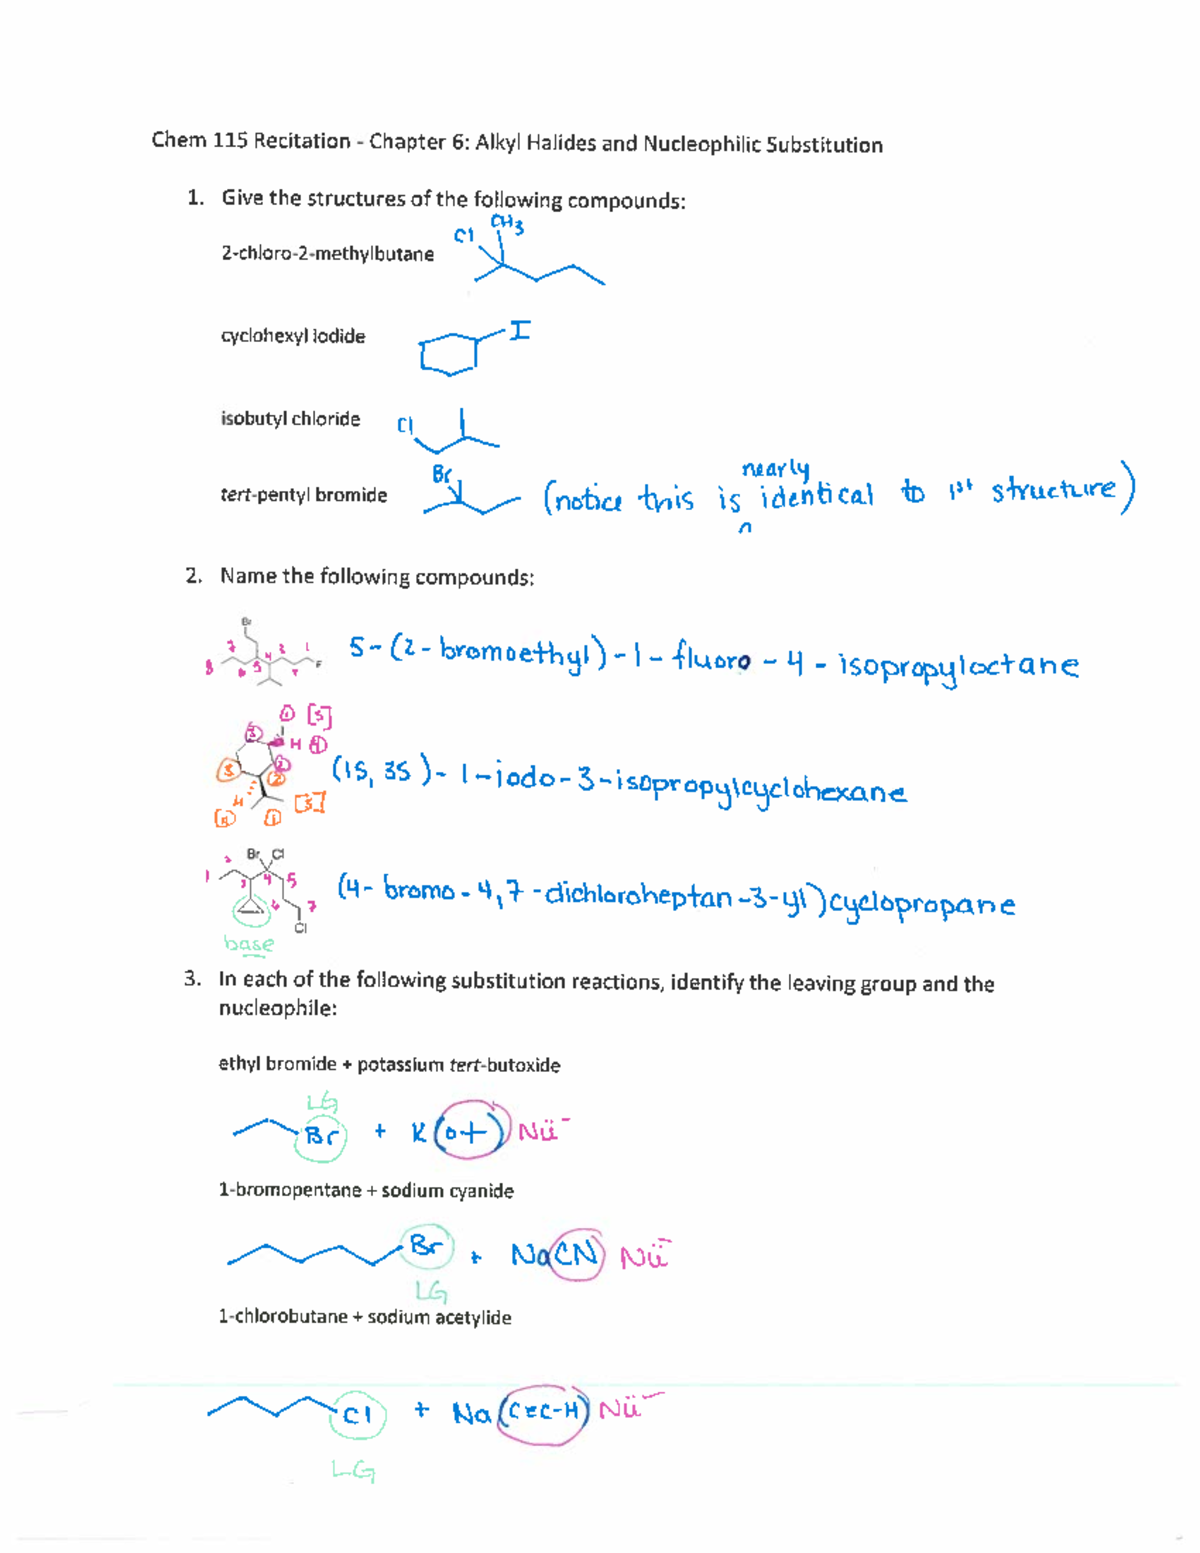 Chem 115 Recitation - Chapter 6: Alkyl Halides and Nucleophilic Substitution
1. Give the structures of the following compounds:
Cl CH3
2-chloro-2-methylbutane
cyclohexyl iodide
I
isobutyl chloride
Cl
nearly
Br
tert-pentyl bromide
(notice this is ^ identical to 1st structure)
2. Name the following compounds:
Br
7 3 2 1
8 6 5 4 F
5-(2-bromoethyl)-1-fluoro-4-isopropyloctane
① [S]
③ H ④
③ ② ②
(1S, 3S)-1-iodo-3-isopropylcyclohexane
H [S]
④ ①
Br Cl
1 2 3 4 5
6 7
Cl
(4-bromo-4,7-dichloroheptan-3-yl)cyclopropane
base
3. In each of the following substitution reactions, identify the leaving group and the
nucleophile:
ethyl bromide + potassium tert-butoxide
LG
Br + K(O+) Nü⁻
1-bromopentane + sodium cyanide
Br + NaCN Nü⁻
LG
1-chlorobutane + sodium acetylide
Cl + Na(C≡C-H) Nü⁻
LG